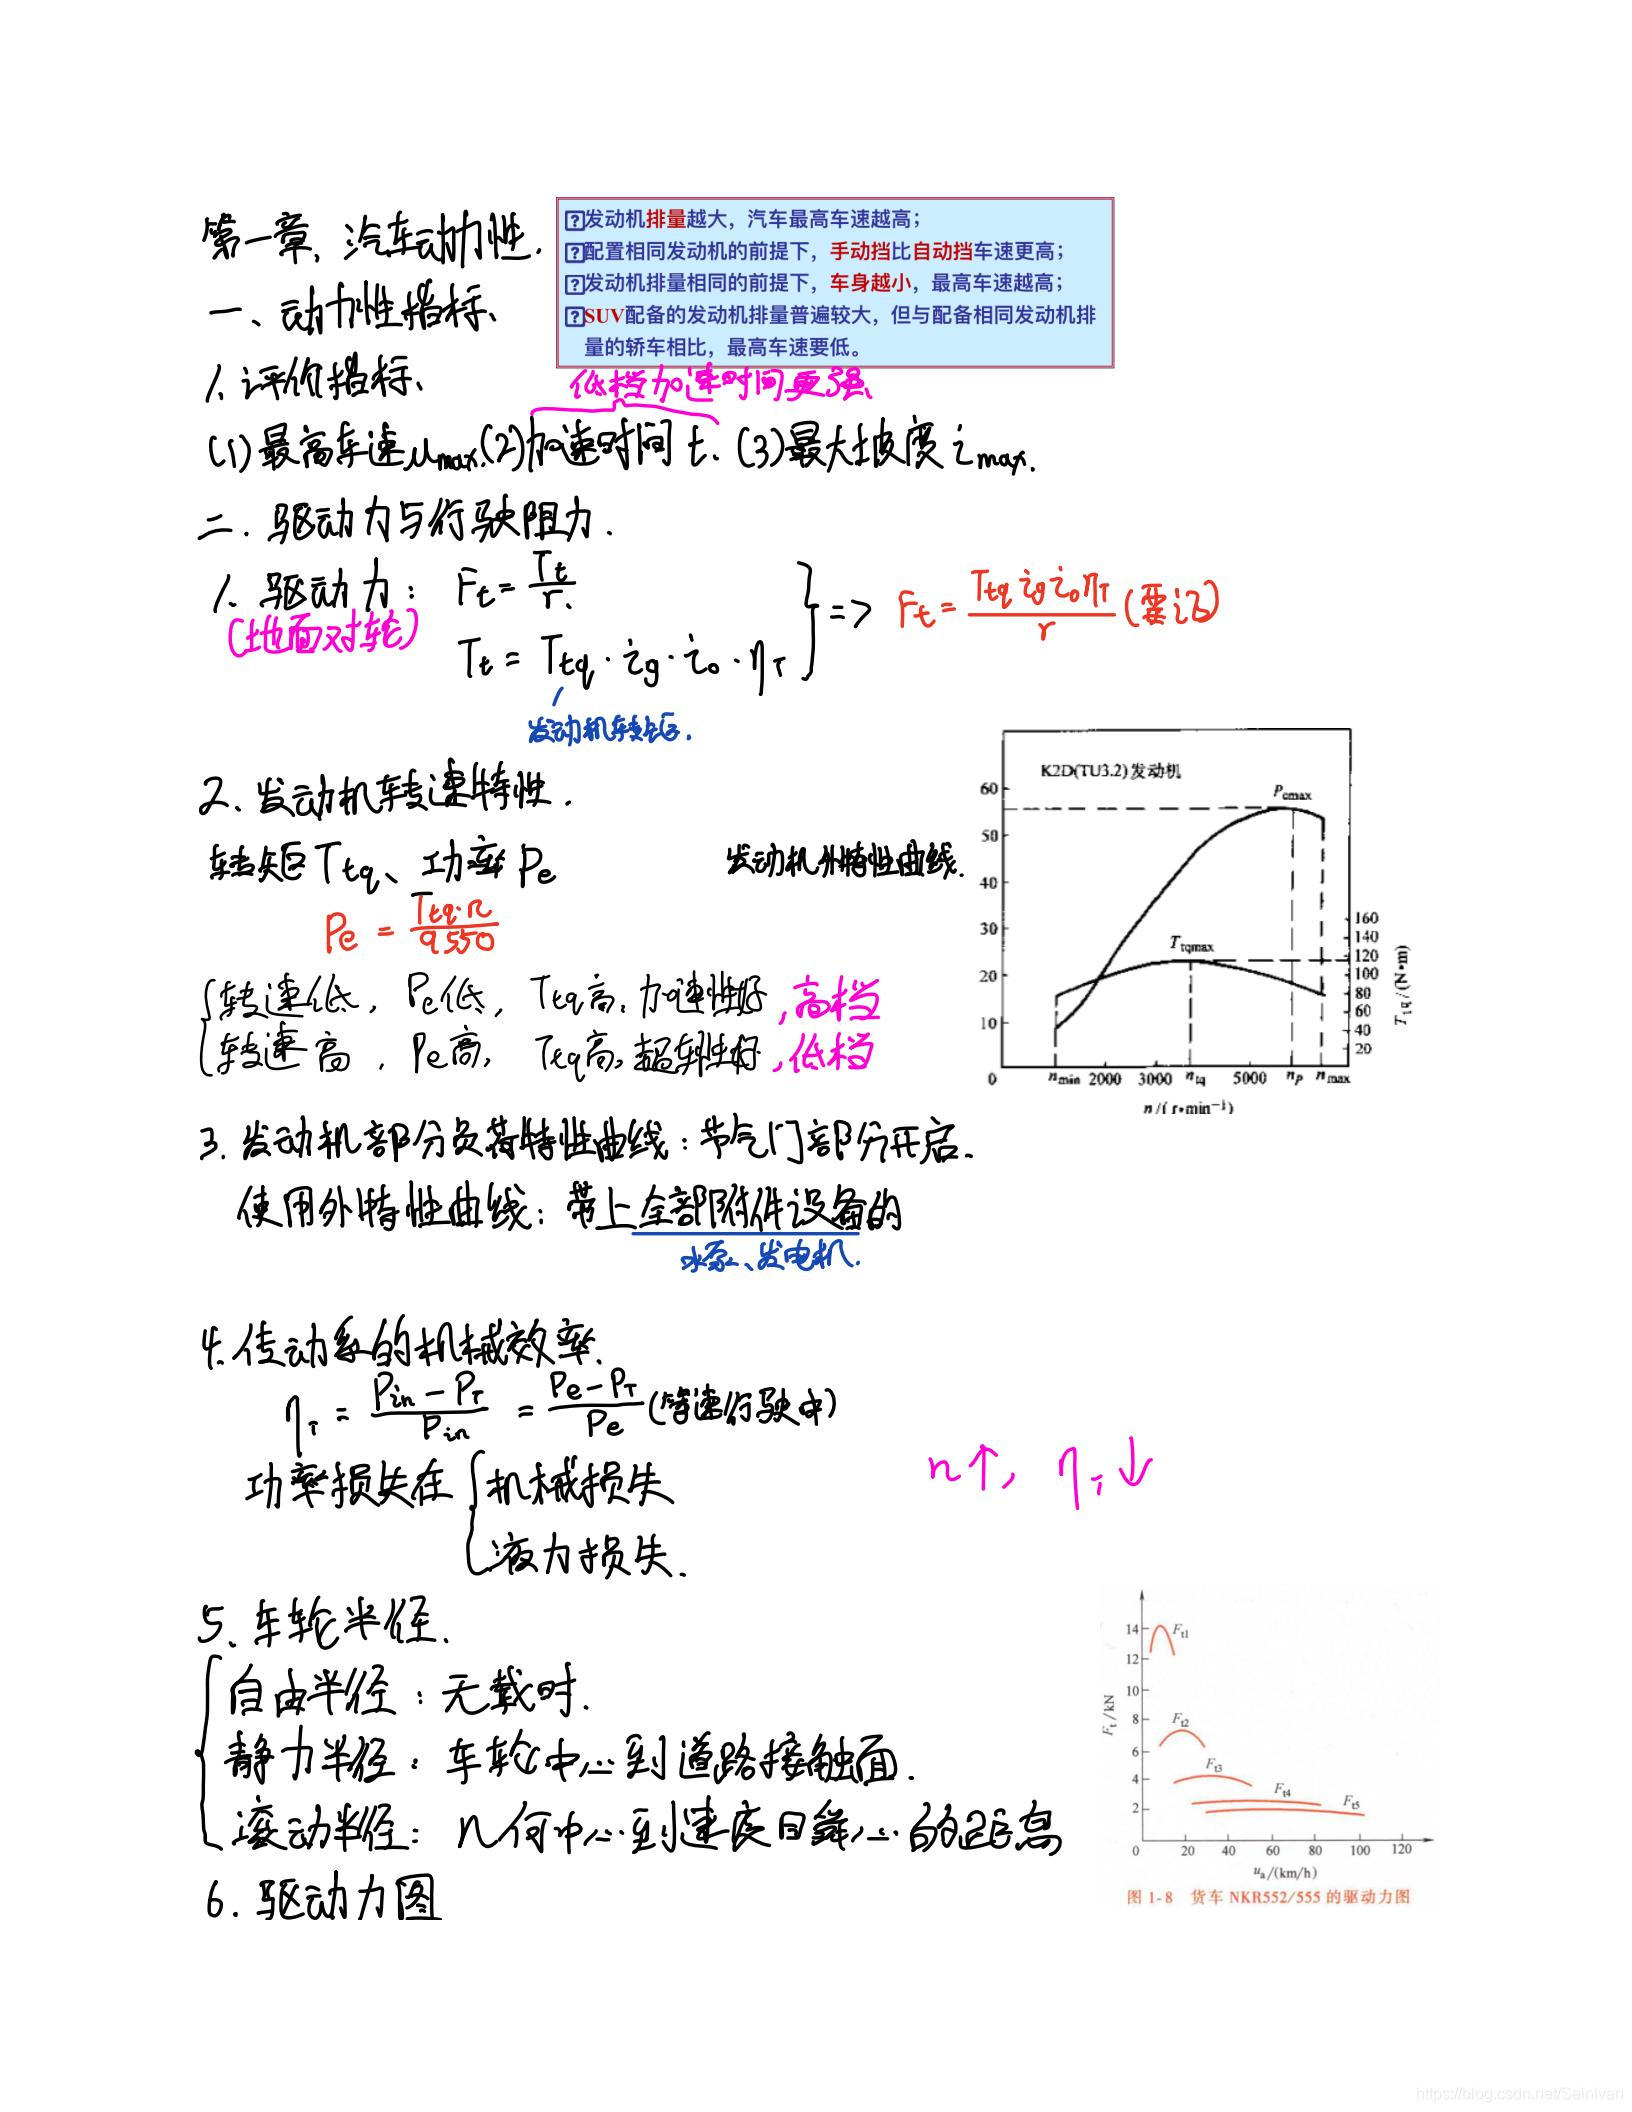 第一章、汽车动力性.
发动机排量越大，汽车最高车速越高；
配置相同发动机的前提下，手动挡比自动挡车速更高；
发动机排量相同的前提下，车身越小，最高车速越高；
SUV配备的发动机排量普遍较大，但与配备相同发动机排
量的轿车相比，最高车速要低。
一、动力性指标、
1、评价指标、
低档加速时间更强、
(1)最高车速umax.(2)加速时间t、(3)最大坡度imax.
二. 驱动力与行驶阻力.
1. 驱动力: Ft = Tt/r.
(地面对轮)
Tt = Ttq·ig·i0·ηT
=> Ft = Ttq ig i0 ηT / r (要记)
发动机转矩.
2、发动机转速特性.
转矩Ttq、功率Pe
Pe = Ttq·n/9550
发动机外特性曲线.
K2D(TU3.2)发动机
Pemax
Ttqmax
60
50
40
30
20
10
0
160
140
120
100
80
60
40
20
Ttq/(N•m)
nmin 2000 3000 ntq 5000 nP nmax
n/(r•min⁻¹)
转速低, Pe低, Ttq高, 加速性好, 高档
转速高, Pe高, Ttq高, 超车性好, 低档
3. 发动机部分负荷特性曲线: 节气门部分开启.
使用外特性曲线: 带上全部附件设备的
水泵、发电机.
4.传动系的机械效率.
ηT = (Pin-PT)/Pin = (Pe-PT)/Pe (等速行驶中)
n↑, ηT↓
功率损失在
机械损失
液力损失.
5、车轮半径.
自由半径: 无载时.
静力半径: 车轮中心到道路接触面.
滚动半径: 几何中心到速度瞬心的距离
6. 驱动力图
Ft/kN
14
12
10
8
6
4
2
Ft1
Ft2
Ft3
Ft4
Ft5
0 20 40 60 80 100 120
ua/(km/h)
图 1-8 货车 NKR552/555 的驱动力图
https://blog.csdn.net/SeinIvan